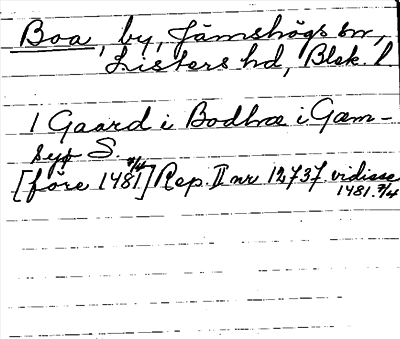 Boa, by, Jämshögs sn,
Listers hd, Blek. l.
1 Gaard i Bodhræ i Gæm-
syø S.
[före 1481 7/4] Rep. II nr 12737 vidisse
1481.7/4